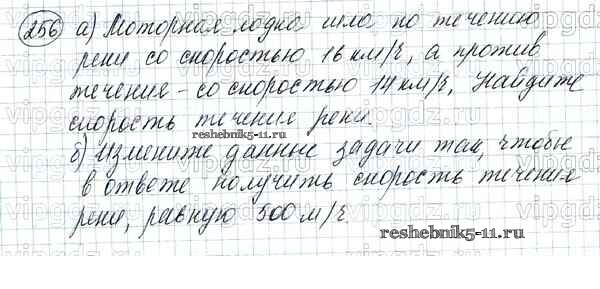 256 а) Моторная лодка шла по течению
реки со скоростью 16 км/ч, а против
течения - со скоростью 14 км/ч. Найдите
скорость течения реки.
reshebnik5-11.ru
б) Измените данные задачи так, чтобы
в ответе получить скорость течения
реки, равную 500 м/ч.
reshebnik5-11.ru